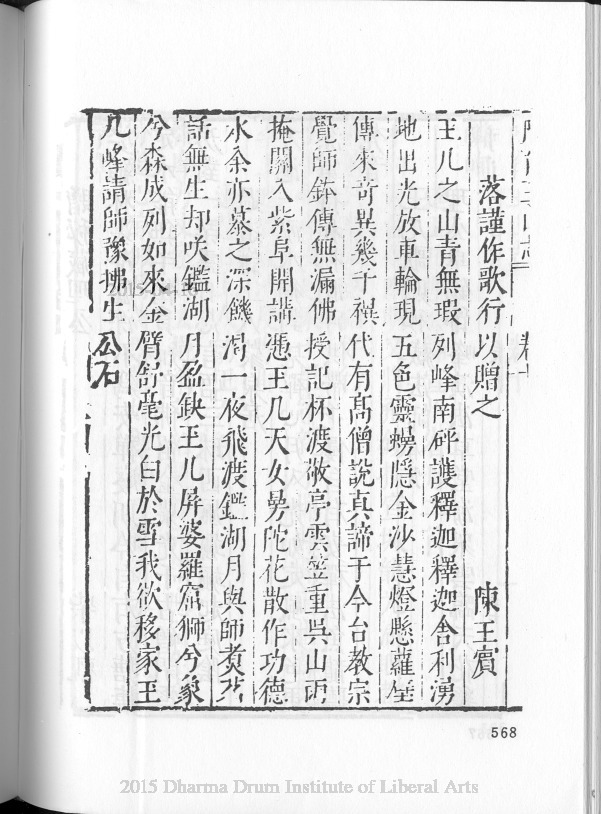 落謹作歌行以贈之 陳王賓
玉几之山青無瑕 列峰南砰護釋迦釋迦舍利湧
地出光放車輪現 五色靈蜯隱金沙慧燈懸蘿
傳來奇異幾千禩 代有高僧說真諦于今台教宗
覺師鉢傳無漏佛 授記杯渡敬亭雲笠重吳山
掩關入紫阜開講 憑王几天女曼陀花散作功德
水余亦慕之深饑 渴一夜飛渡鑑湖月與師煑茗
話無生却咲鑑湖 月盈鈌王几屏婆羅窟獅兮象
兮森成列如來金 臂舒毫光白於雪我欲移家王
几峰請師豫拂生 公石
568
2015 Dharma Drum Institute of Liberal Arts